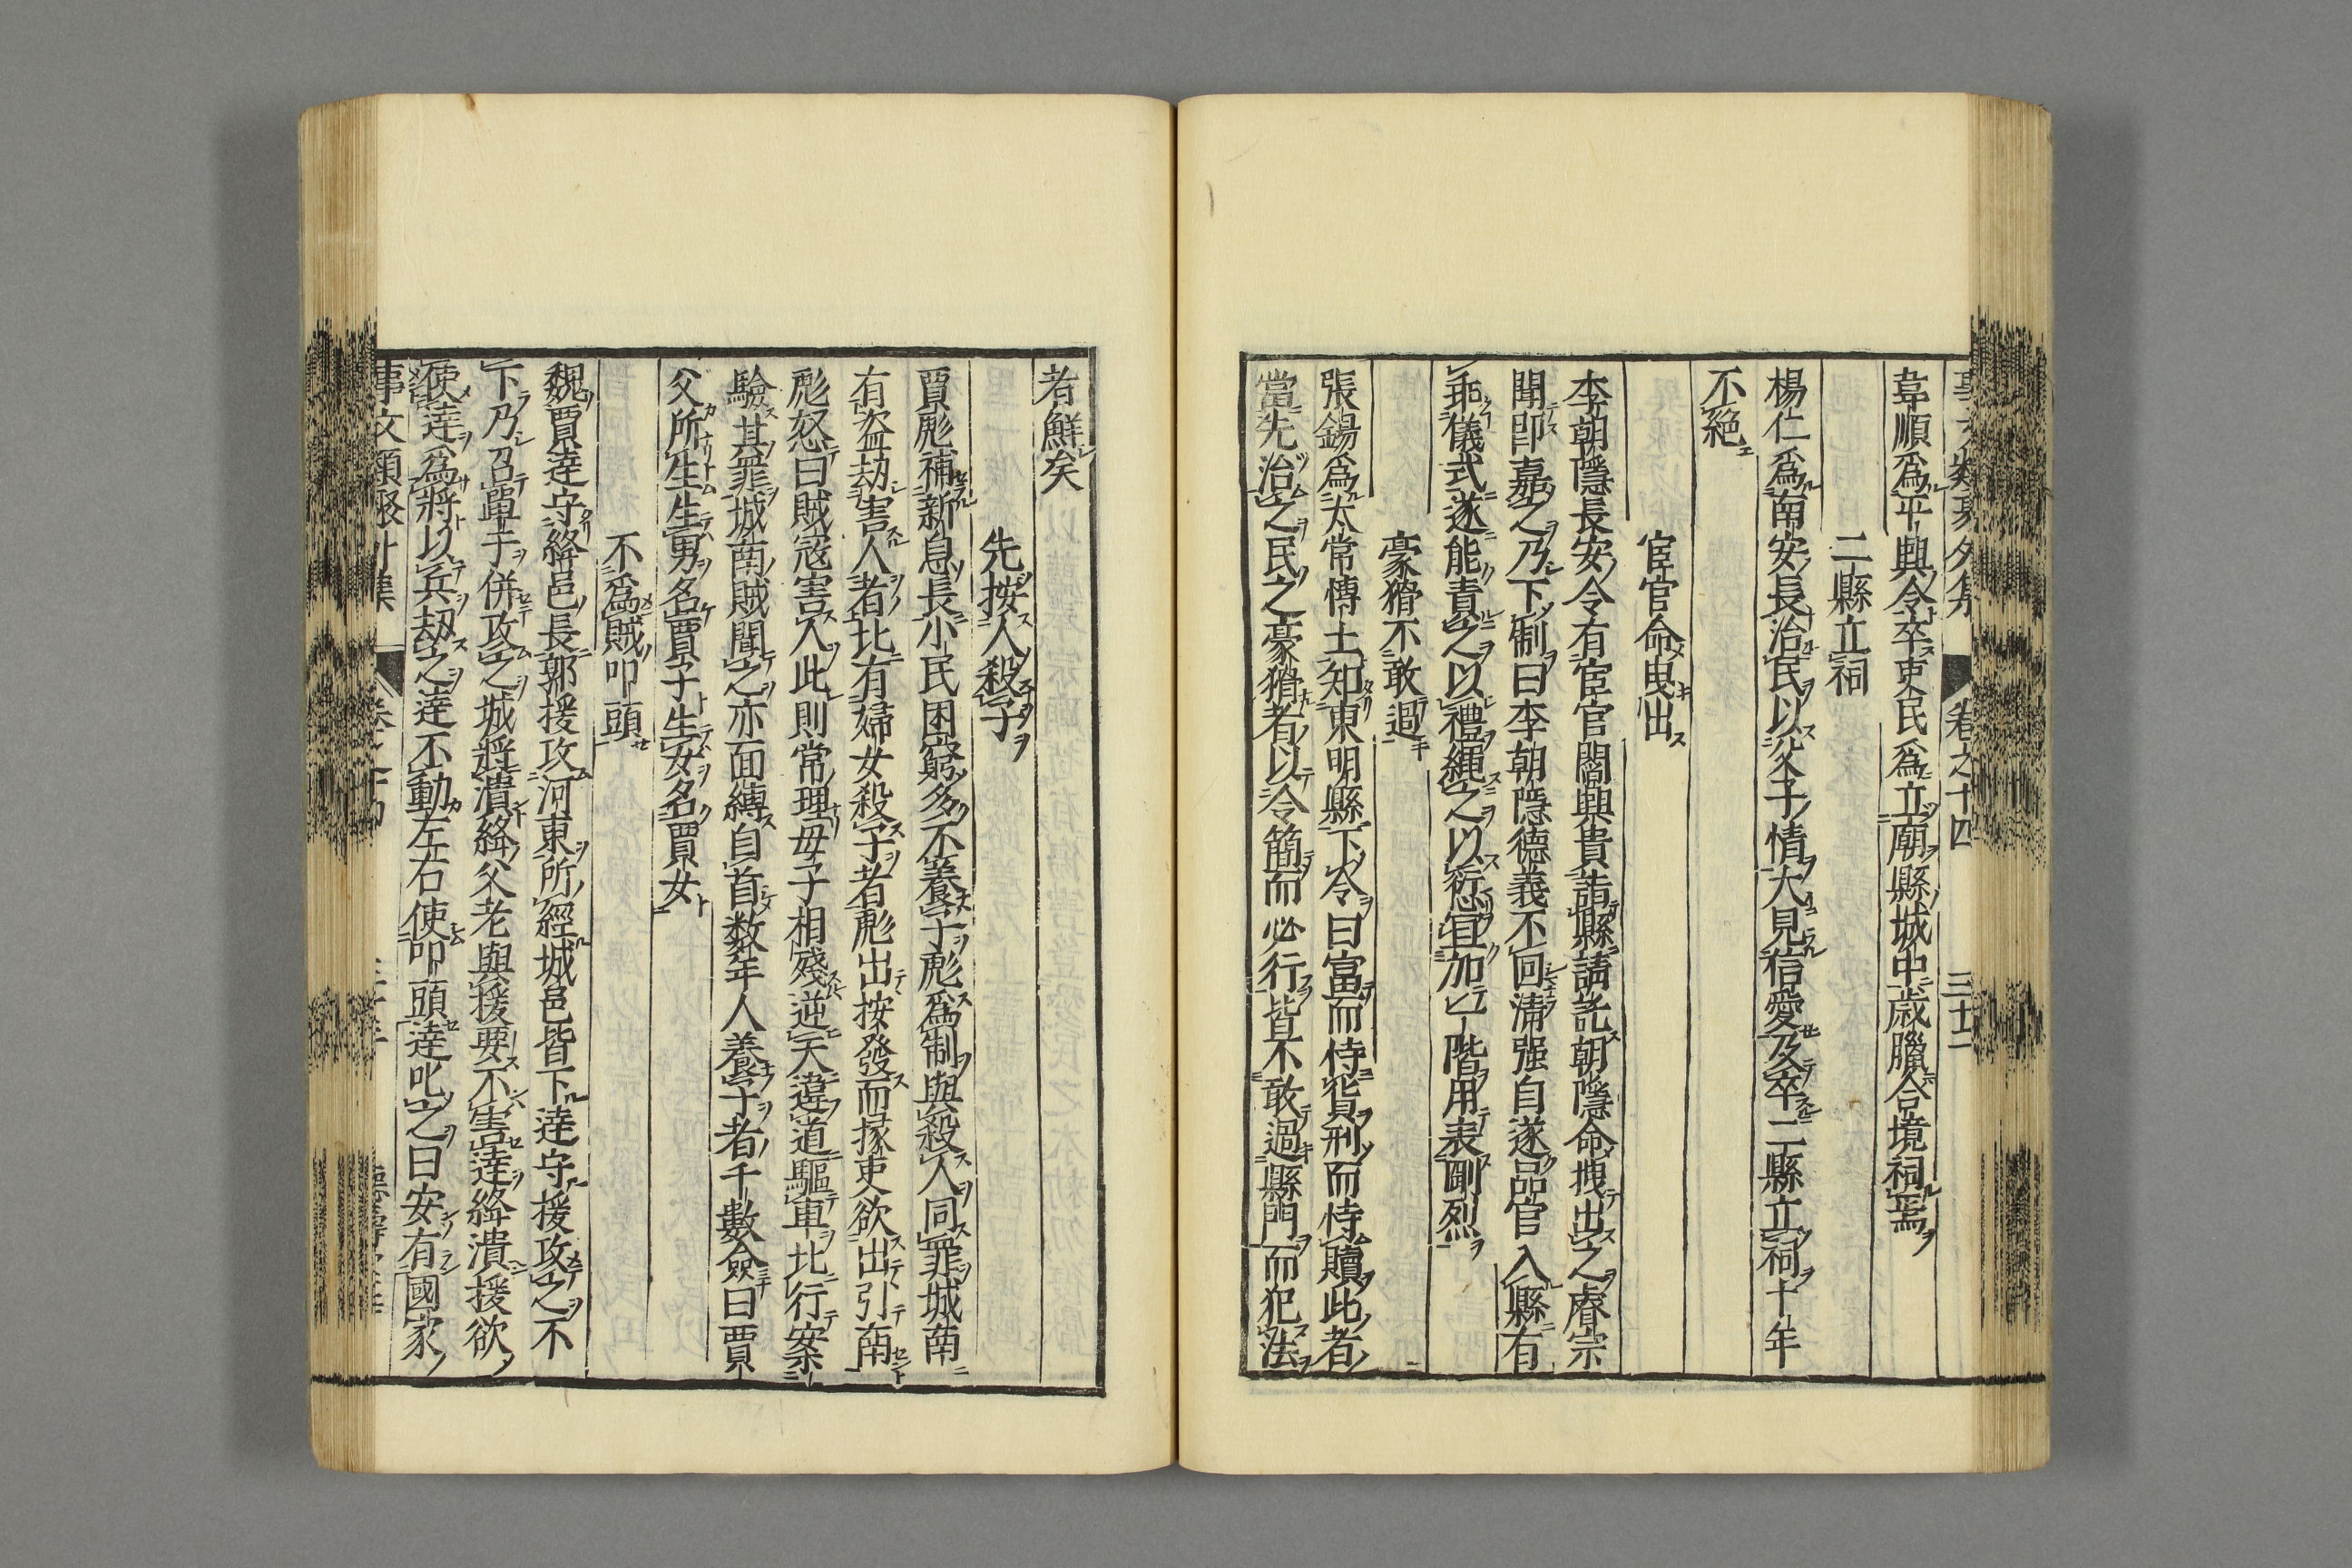 事文類聚外集 卷之十四 三十二
韋順爲平輿令卒吏民爲立廟縣城中歲臘合境祠焉
二縣立祠
楊仁爲南安長治民以父子情大見信愛及卒二縣立祠十年
不絕
宦官命曳出
李朝隱長安令有宦官閻興貴詣縣請託朝隱命拽出之睿宗
聞卽嘉之乃下制曰李朝隱德義不回淸强自遂品官入縣有
乖儀式遂能責之以禮繩之以愆宜加一階用表剛烈
豪猾不敢過
張錫爲太常博士知東明縣下令曰富而恃貲刑而恃贖此者
當先治之民之豪猾者以令簡而必行皆不敢過縣門而犯法
者鮮矣
先按人殺子
賈彪補新息長小民困窮多不養子彪爲制與殺人同罪城南
有盗劫害人者北有婦女殺子者彪出按發而掾吏欲出引南
彪怒曰賊寇害人此則常理母子相殘逆天違道驅車北行案
驗其罪城南賊聞之亦面縛自首数年人養子者千數僉曰賈
父所生生男名賈子生女名賈女
不爲賊叩頭
魏賈逵守絳邑長郭援攻河東所經城邑皆下逵守援攻之不
下乃召單于併攻之城將潰絳父老與援要不害逵絳潰援欲
使逵爲將以兵劫之逵不動左右使叩頭逵叱之曰安有國家